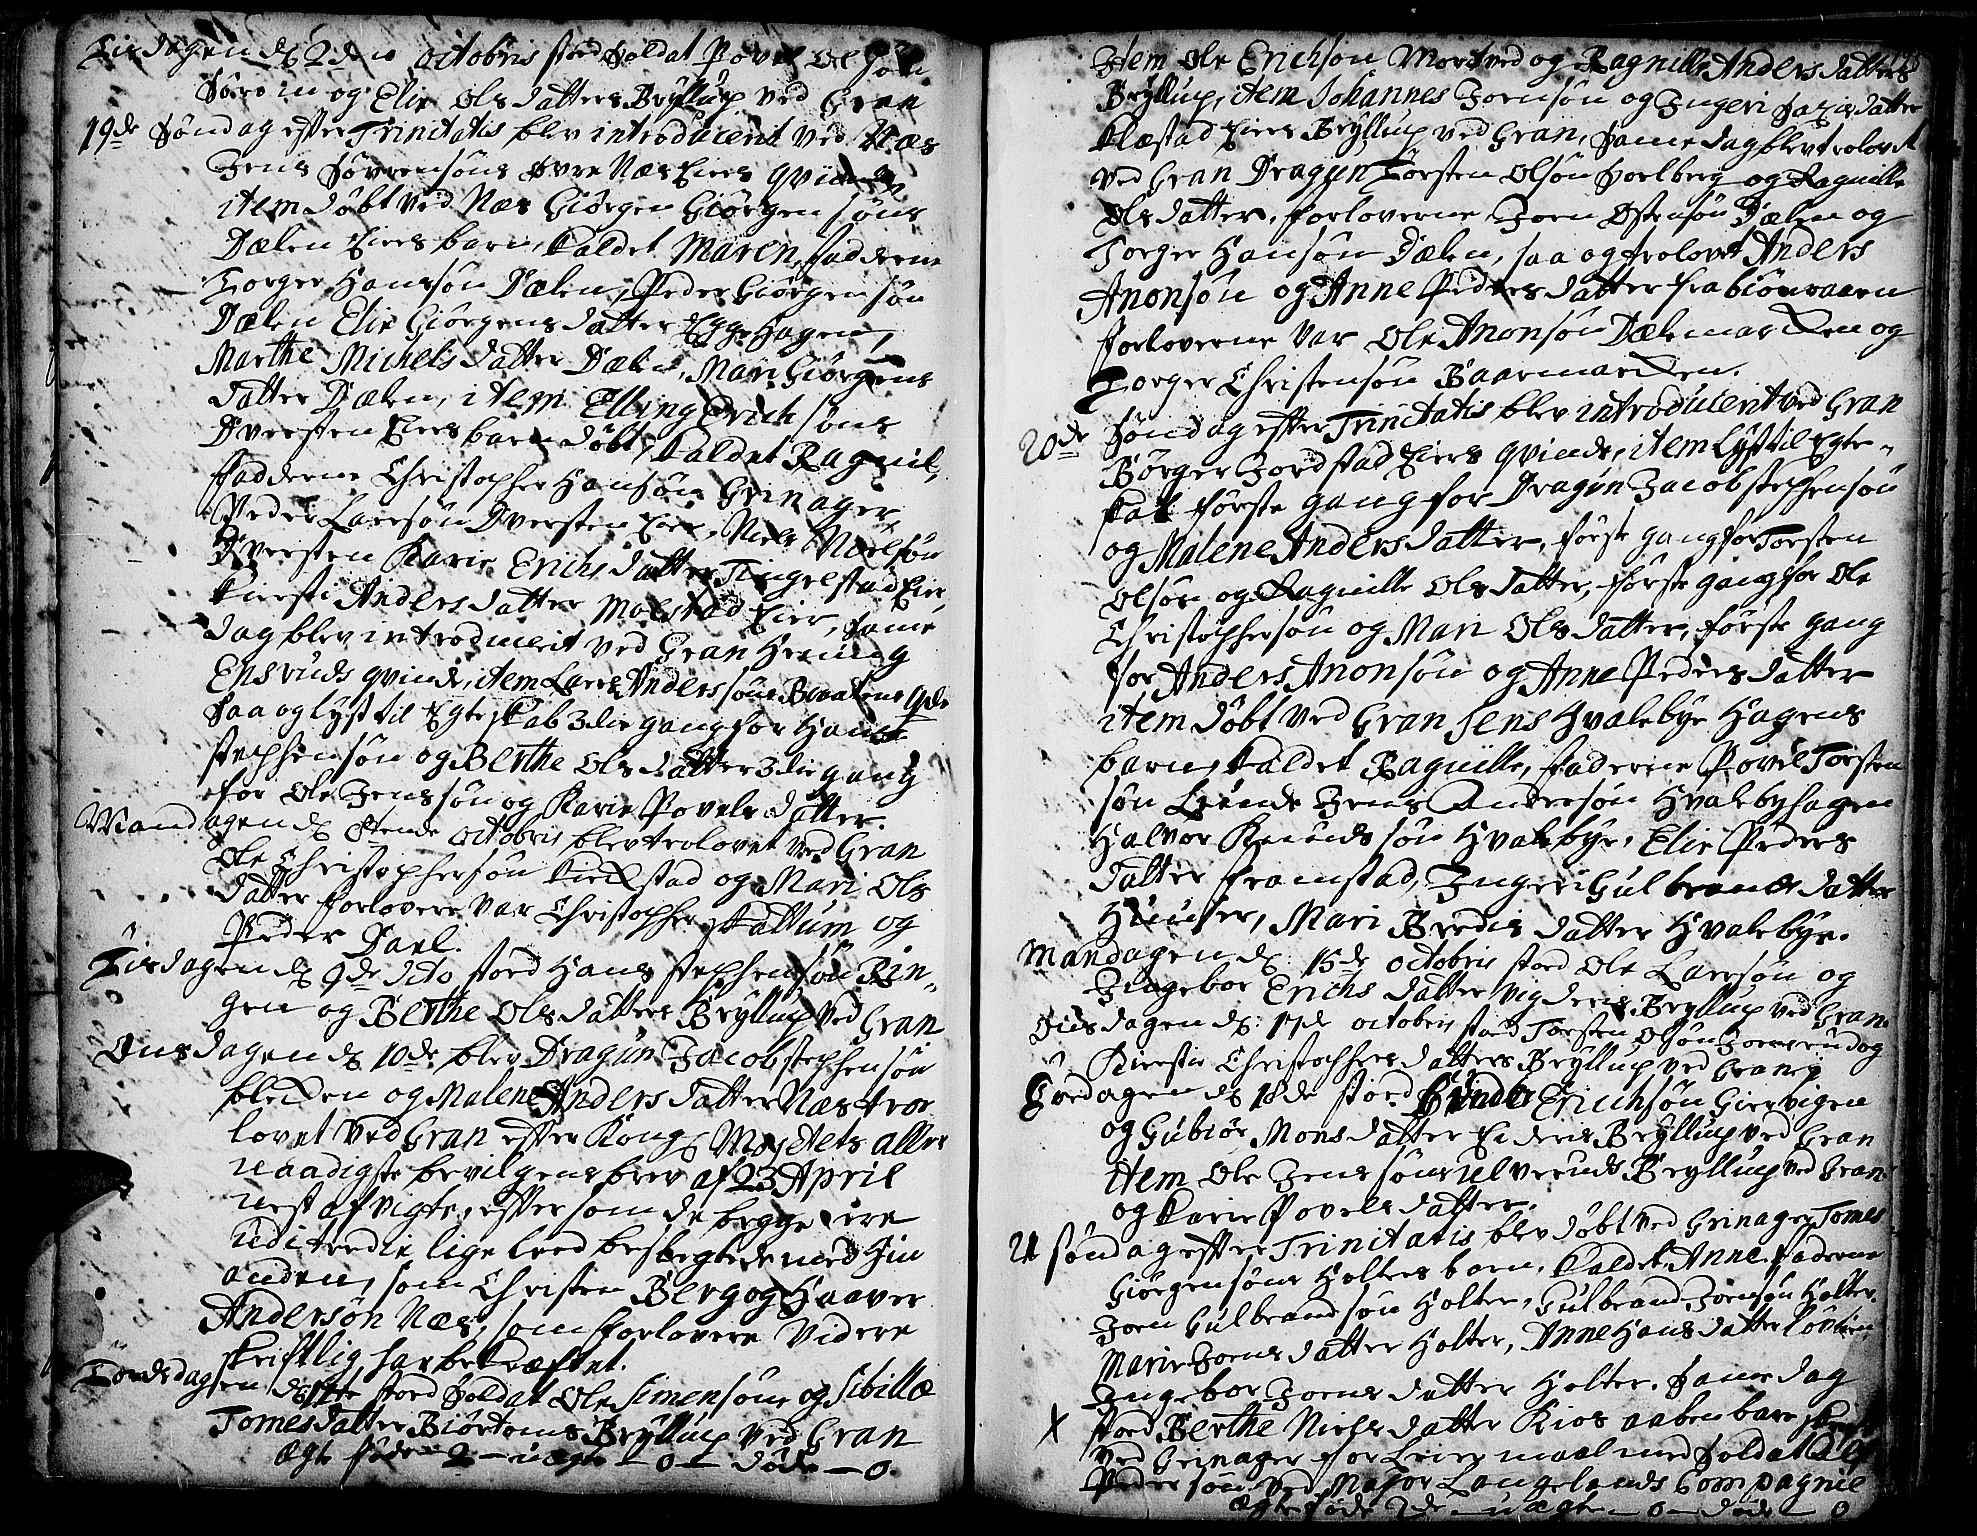 Tisdagen d. 2den octobris stod Soldat Povel Olsøn
og Elie Olsdatters Bryllup ved Gran
19de Søndag effter Trinitatis blev introducerit ved Næs
Jens Sørrensøns øvre Næs Eiers qvinde
item døbt ved Næs Giørgen Giørgensøns
Dælen Eiers barn, kaldet Maren, fadderne
Torger Hansøn Dælen, Peder Giørgensøn
Dælen Elie Giørgensdatter Eggehagen,
Marthe Michelsdatter Dælen, Mari Giørgens
datter Dælen, item Elling Erichsøns
Dversten Eiers barn døbt, kaldet Ragnil,
fadderne Christopher Hansøn Grinager,
Peder Larsøn Dversten Eier, Niels Nielsøn
Dversten Karie Erichsdatter Tingelstad Eier,
Kiersti Andersdatter Molstad Eier, Same
dag blev introducerit ved Gran Henning
Ensruds qvinde, item Lars Andersøns qde
Saa og lyst til Egteskab 3die gang for Hans
Stephensøn og Berthe Olsdatter 3die gang
for Ole Jenssøn og Karie Povelsdatter.
Mandagen d. 8tende octobris blev trolovet ved Gran
Ole Christophersøn Kieldstad og Mari Ols
datter forlovere var Christopher Skattum og
Peder Dael.
Tisdagen d. 9de dito stod Hans Stephensøn Rin-
gen og Berthe Olsdatters Bryllup ved Gran
Onsdagen d. 10de blev Dragun Jacob Stephensøn
og Malene Andersdatter Næs tro
lovet ved Gran effter Kong. Mayestets aller
naadigste bevilgensbrev af 23 April
nest afvigte, effter som de begge ere
udi tredie lige leed beslegtede med hin
anden, som Christen Berg og Haaver
Andersøn Næs, som forlovere videre
skriftlig har bekræftet.
Torsdagen d. 11te stod Soldat Ole Simensøns og Sibillæ
Tomesdatter Biørtoms Bryllup ved Gran
Ægte føde 2 - uægte - 0 - døde - 0.
Item Ole Erichsøn Morstved og Ragnille Andersdatters
Bryllup, item Johannes Joensøn og Ingeri
Klæstad Eiers Bryllup ved Gran, Same dag blev trolovet
ved Gran Dragun Torsten Olsøn og Ragnille
Olsdatter, forloverne Joen Østensøn Dælen og
Torger Hansøn Dælen, saa og trolovet Anders
Anonsøn og Anne Pedersdatter fra
forloverne var Ole Anonsøn Dælemarken og
Torger Christensøn Baarmarken.
20de Søndag effter Trinitatis blev introducerit ved Gran
Børger Jordstad Eiers qvinde, item lyst til Egte-
skab første gang for Dragun Jacob Stephensøn
og Malene Andersdatter, første gang for Torsten
Olsøn og Ragnille Olsdatter, første gang for Ole
Christophersøn og Mari Olsdatter, første gang
for Anders Anonsøn og Anne Pedersdatter
item døbt ved Gran Jens Hvalebye Hagens
barn, kaldet Ragnille, fadderne Povel Torsten
søn Lunde Jens Andersøn Hvalebyhagen
Halvor Knudssøn Hvalebye, Elie Peders
datter Framstad, Ingeri Gulbrandsdatter
Hunser, Mari Bredisdatter Hvalebye.
Mandagen d. 15de octobris stod Ole Larsøn og
Ingebor Erichsdatter Bryllup ved Gran.
Onsdagen d. 17de octobris stod Torsten Olsøn og
Kiersti Christophersdatters Bryllup ved Gran
Torsdagen d. 18de stod Erichsøn Giervigen
og Gubiør Monsdatter Bryllup ved Gran
item Ole Jenssøns Ulveruds Bryllup ved Gran
og Karie Povelsdatter.
21 Søndag effter Trinitatis blev døbt ved Grinager Tomes
Giørgensøns Holters barn, kaldet Anne, faderne
Joen Gulbrandsøn Holter, Gulbrand Joensøn Holter.
Marie Joensdatter Holter, Anne Hansdatter
Ingebor Joensdatter Holter. Same dag
X stod Berthe Nielsdatter Kios aabenbare
ved Grinager for Leiermaal med Soldat
Pedersøn ved Major Langelands Compagnie
Ægte føde 2de - uægte - 0 - døde - 0